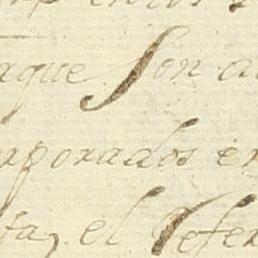 aque Son a
rporados en
ta, el Refe